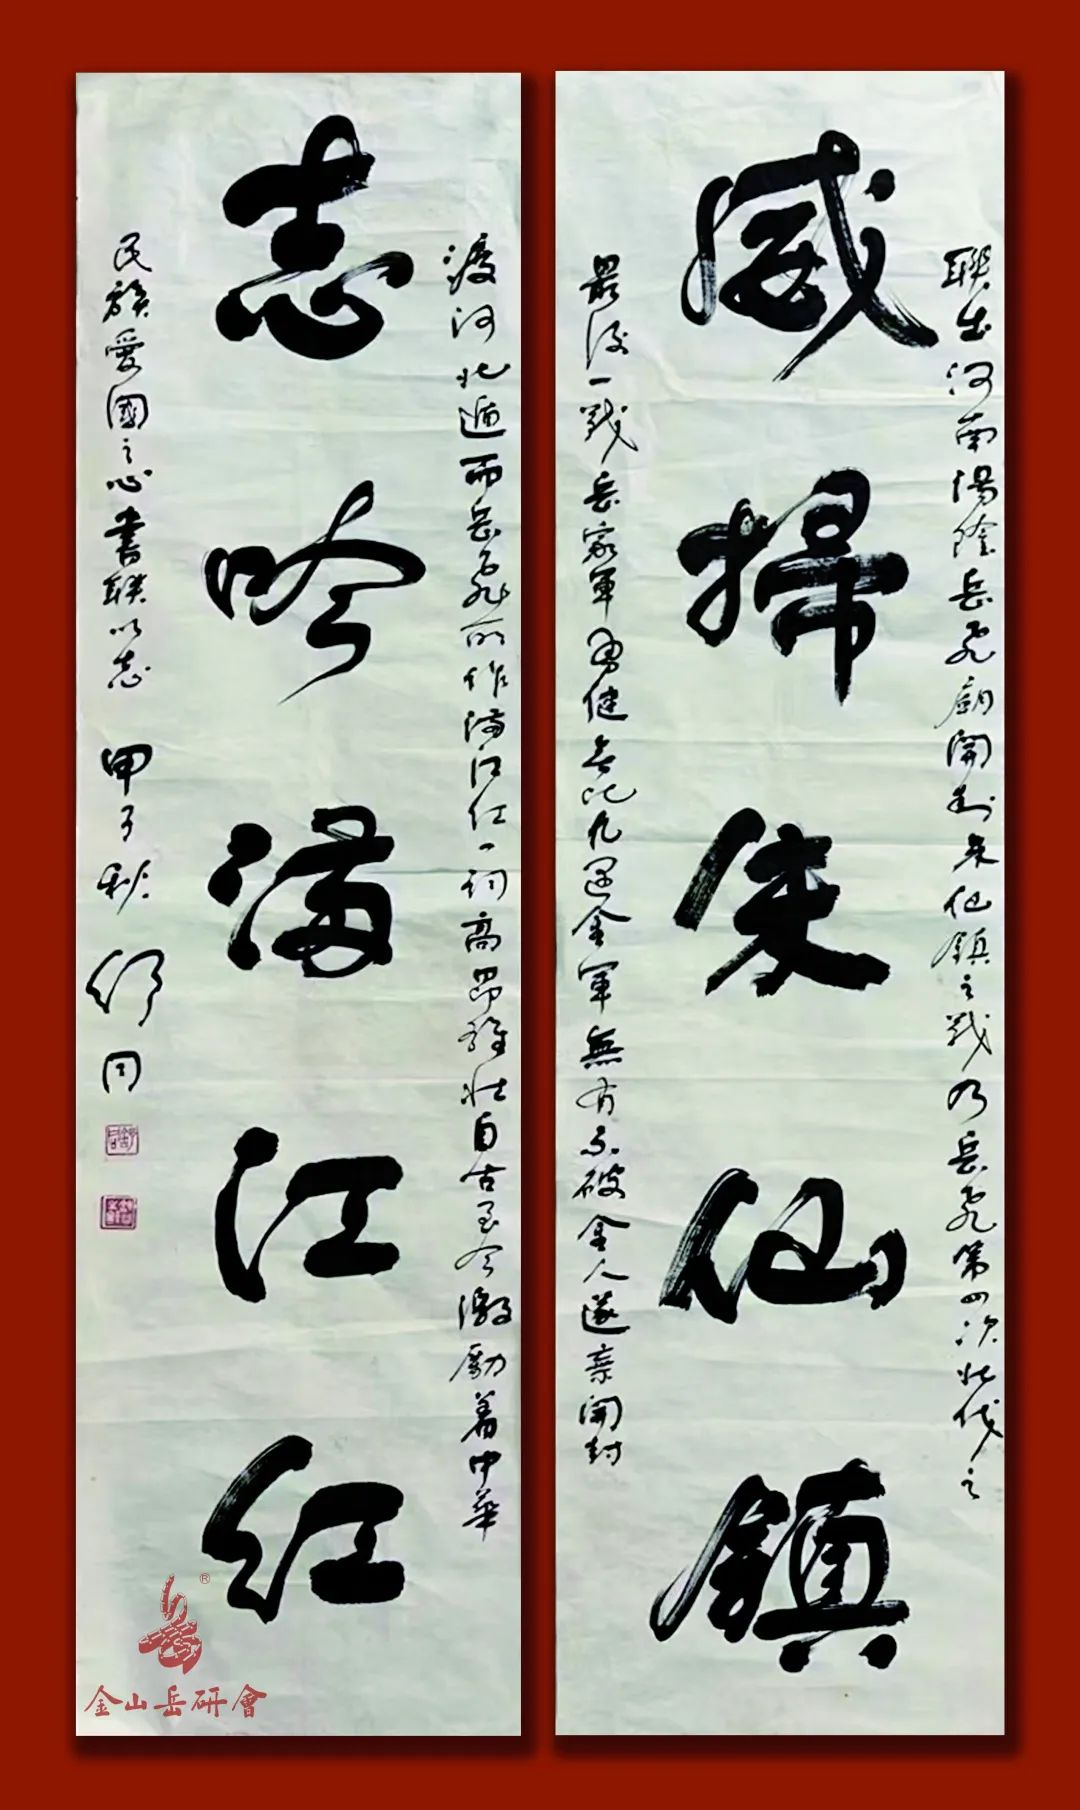 聯出河南湯陰岳飛廟開封朱仙鎮之戰乃岳飛第四次北伐之
威掃朱仙鎮
最後一戰岳家軍勇健无比凡遇金軍無有不破金人遂棄開封
渡河北遁而岳飛所作滿江紅一詞高昂雄壯自古至今激勵着中華
志吟滿江紅
民族愛國之心書聯以志 甲子秋 舒同
金山岳研會